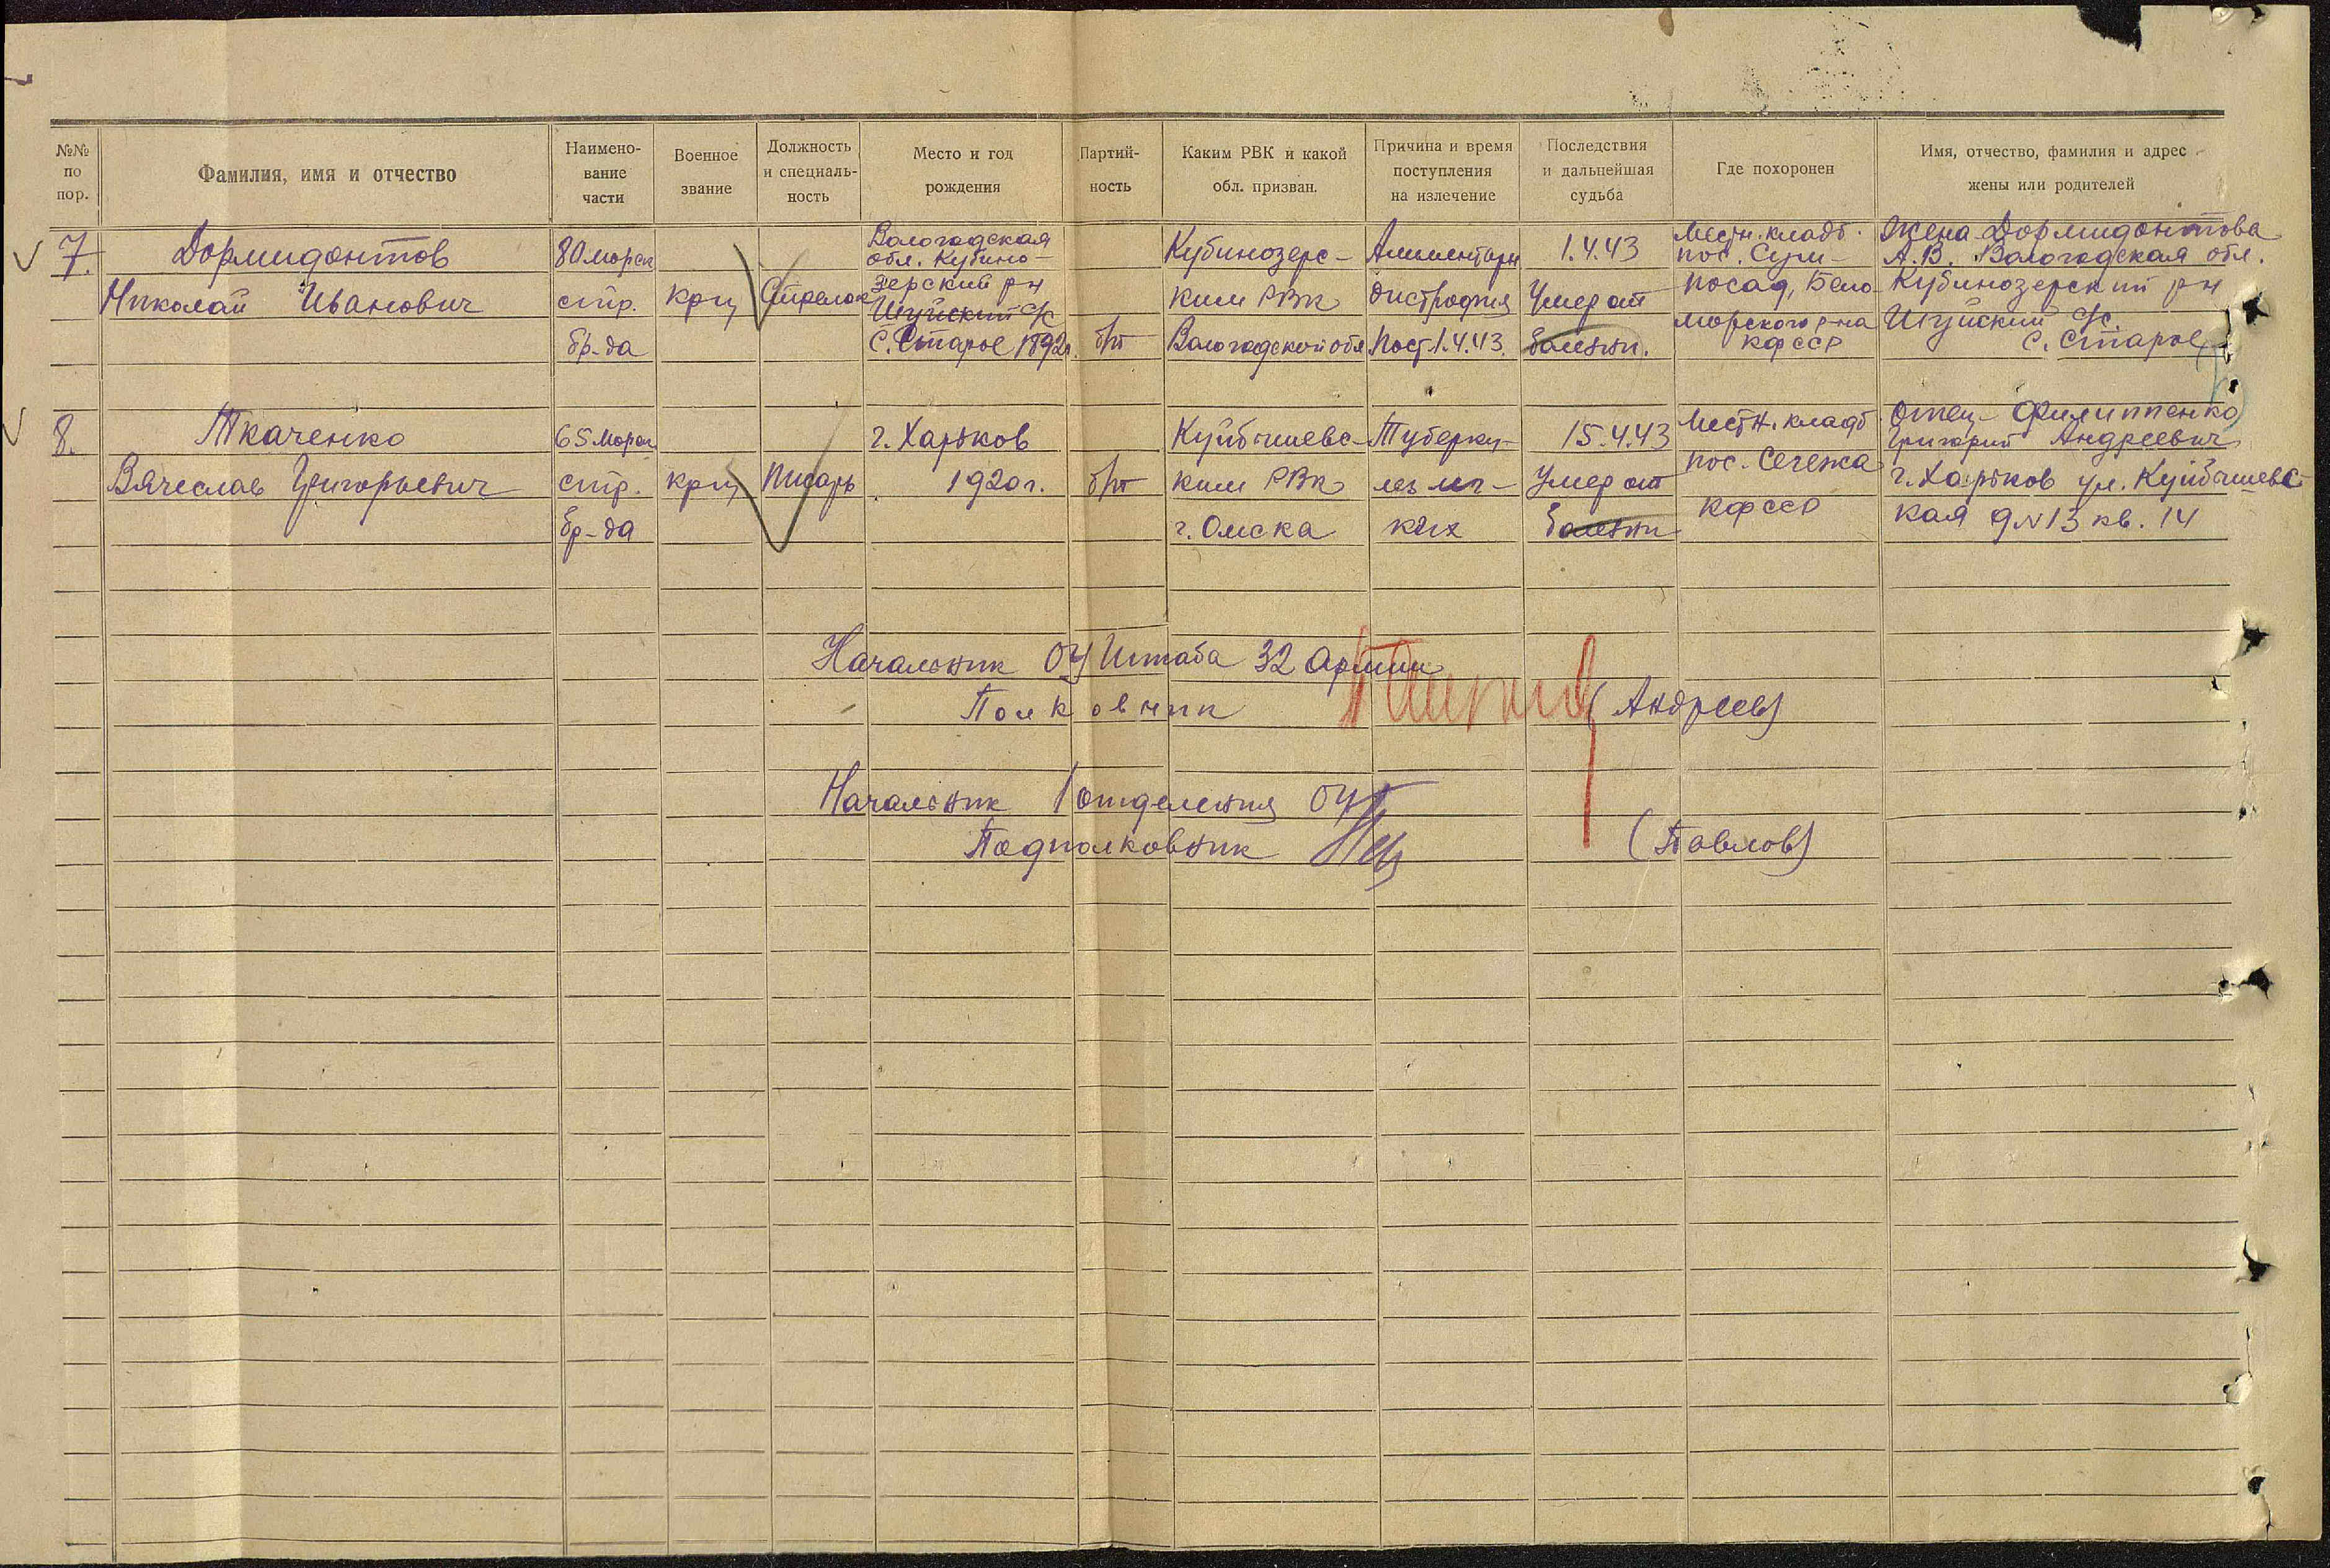 №№ по пор.
Фамилия, имя и отчество
Наимено-
вание
части
Военное
звание
Должность
и специаль-
ность
Место и год
рождения
Партий-
ность
Каким РВК и какой
обл. призван.
Причина и время
поступления
на излечение
Последствия
и дальнейшая
судьба
Где похоронен
Имя, отчество, фамилия и адрес
жены или родителей
7.
Дормидонтов
Николай Иванович
80 морск
стр.
бр-да
крц
Стрелок
Вологодская
обл. Кубино-
зерский р-н
Шуйский с/с
с. Старое 1892г.
б/п
Кубинозерс-
ким РВК
Вологодской обл
Алиментарн
дистрофия
Пост 1.4.43.
1.4.43
Умер от
болезни.
Местн. кладб.
пос. Сум-
посад, Бело
морского р-на
КФССР
Жена Дормидонтова
А.В. Вологодская обл.
Кубинозерский р-н
Шуйский с/с
с. Старое
8.
Ткаченко
Вячеслав Григорьевич
65 морск
стр.
бр-да
крц
Писарь
г. Харьков
1920 г.
б/п
Куйбышевс-
ким РВК
г. Омска
Туберку-
лез лег-
ких
15.4.43
Умер от
болезни
Местн. кладб
пос. Сегежа
КФССР
Отец - Филиппенко
Григорий Андреевич
г. Харьков ул. Куйбышевс
кая д N 13 кв. 14
Начальник ОУ Штаба 32 Армии
Полковник (Андреев)
Начальник 1 отделения ОУ
Подполковник (Павлов)